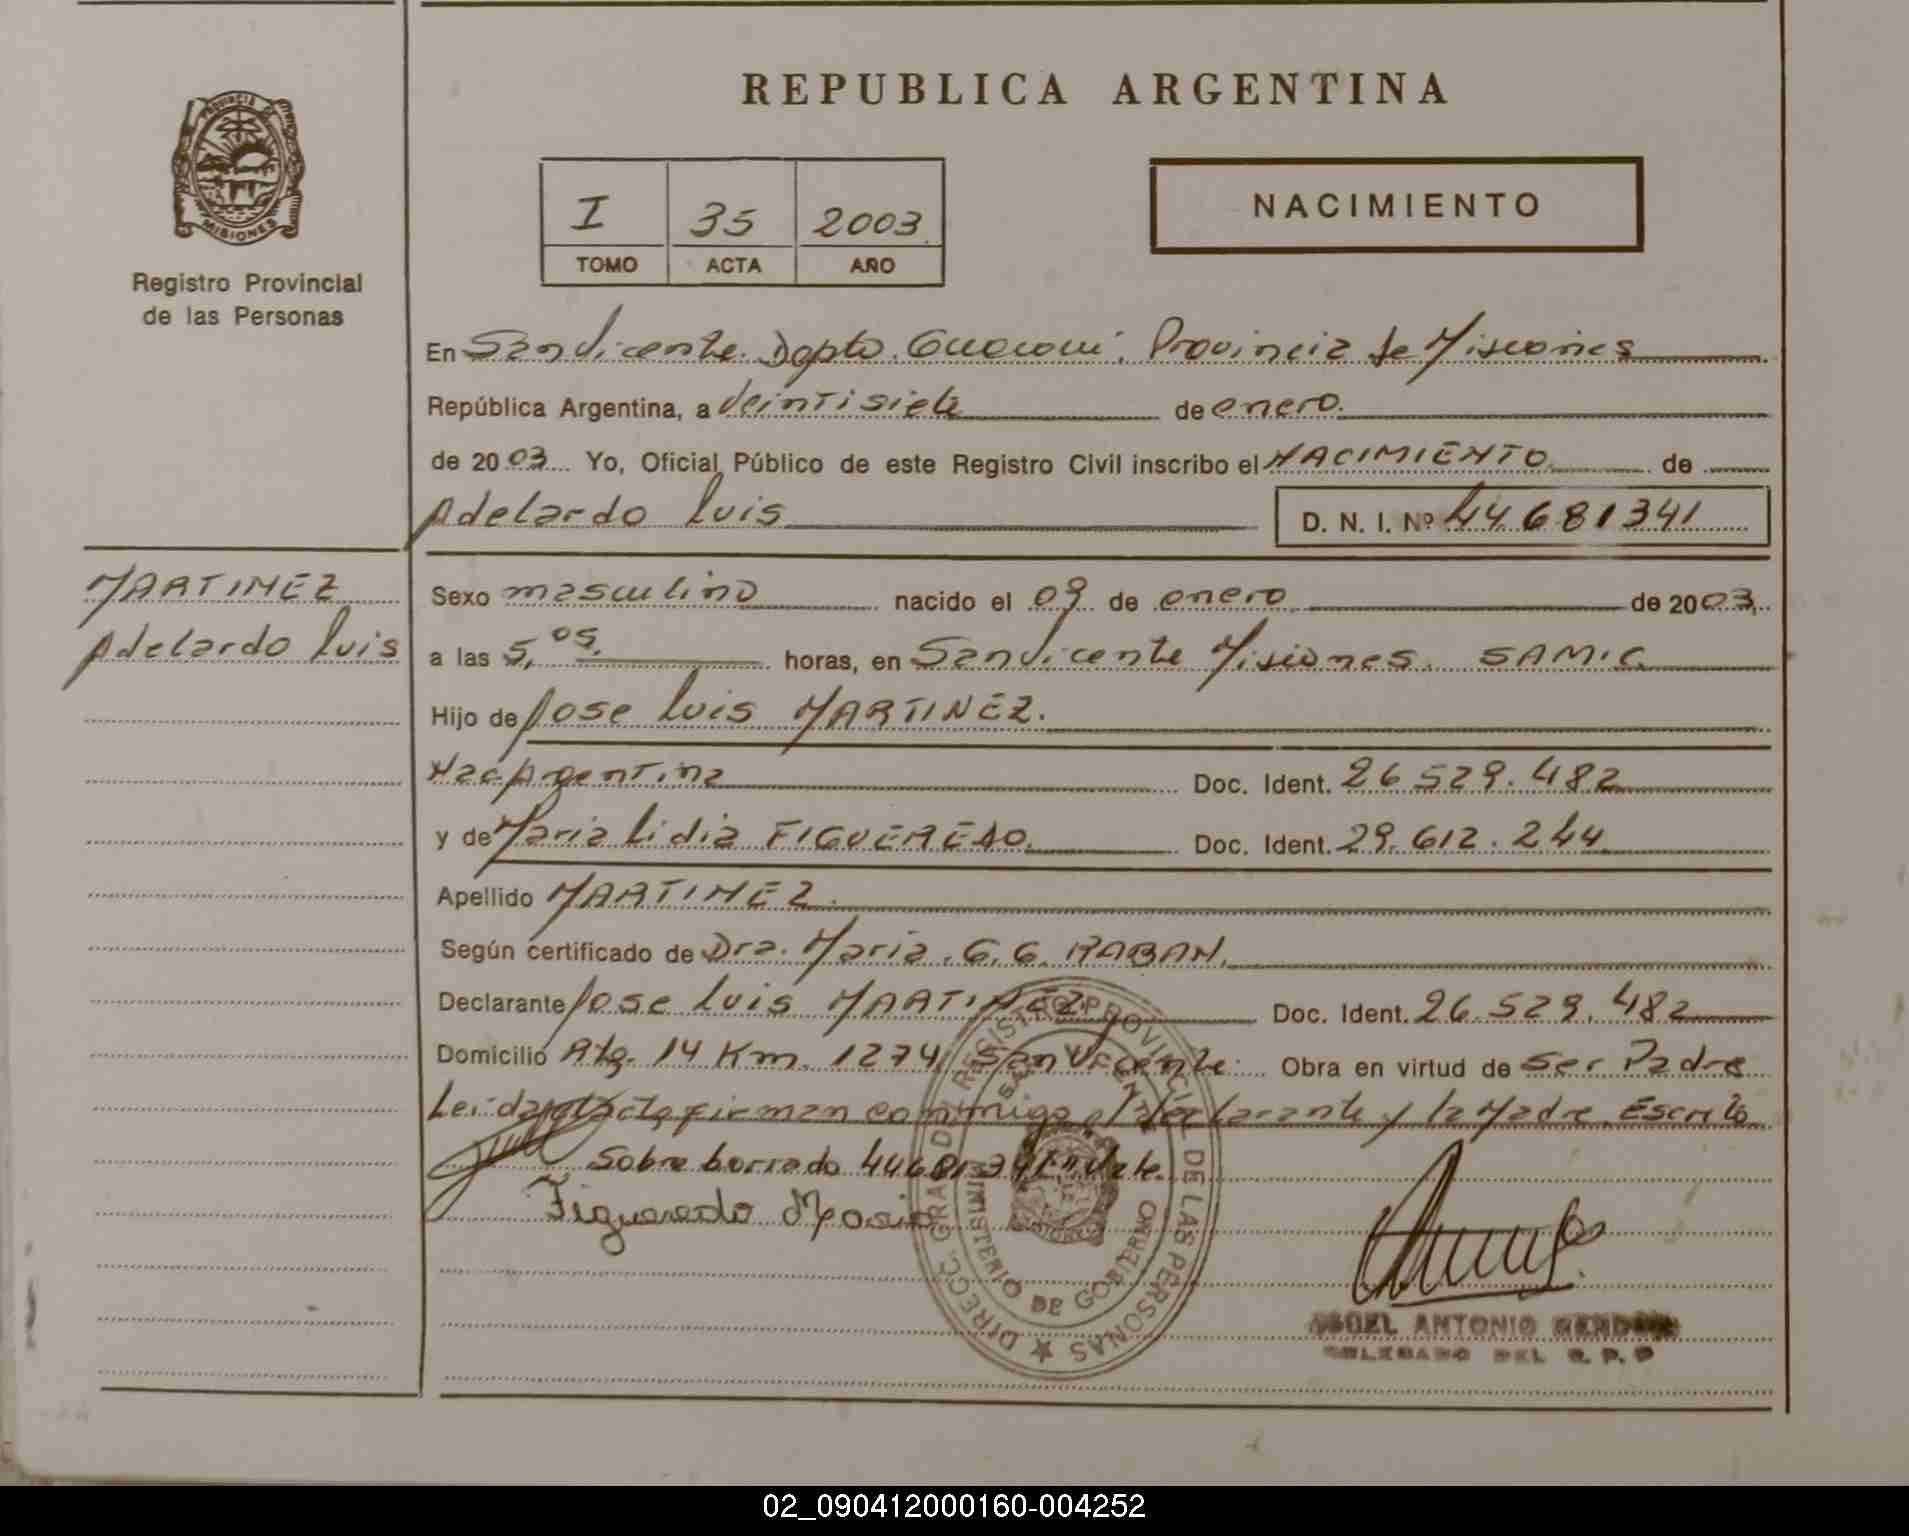 REPUBLICA ARGENTINA
PROVINCIA DE
MISIONES
Registro Provincial
de las Personas
I 35 2003
TOMO ACTA AÑO
NACIMIENTO
En San Vicente. Dpto. Guarani. Provincia de Misiones
República Argentina, a veintisiete de enero.
de 2003 Yo, Oficial Público de este Registro Civil inscribo el NACIMIENTO de
Adelardo Luis
D. N. I. Nº 44681341
MARTINEZ
Adelardo Luis
Sexo masculino nacido el 09 de enero de 2003
a las 5,05. horas, en San Vicente Misiones. SAMIC
Hijo de Jose Luis MARTINEZ.
Nac Argentina Doc. Ident. 26.529.482
y de Maria Lidia FIGUEREDO Doc. Ident. 29.612.244
Apellido MARTINEZ.
Según certificado de Dra. Maria. G. G. RABAN.
Declarante Jose Luis MARTINEZ Doc. Ident. 26.529.482
Domicilio Ruta 14 Km. 1274, San Vicente. Obra en virtud de ser Padre
Leida el acta firman conmigo el declarante y la Madre. Escrito
Sobre borrado 44681341 Vale.
Figueredo Maria
DIRECC. GRAL DE REGISTRO PROVINCIAL DE LAS PERSONAS
SAN VICENTE
MINISTERIO DE GOBIERNO
ANTONIO
DELEGADO DEL R. P. P
02_090412000160-004252